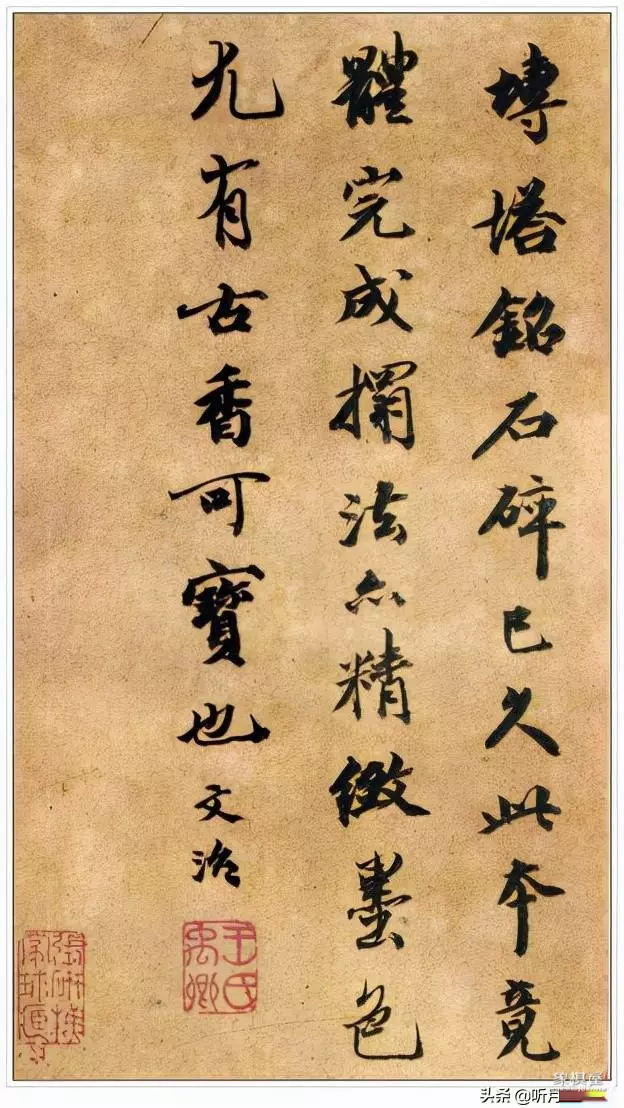 塼塔銘石碎已久此本竟
體完成搨法亦精緻墨色
尤有古香可寶也
文治
王氏禹卿
头条 @听月